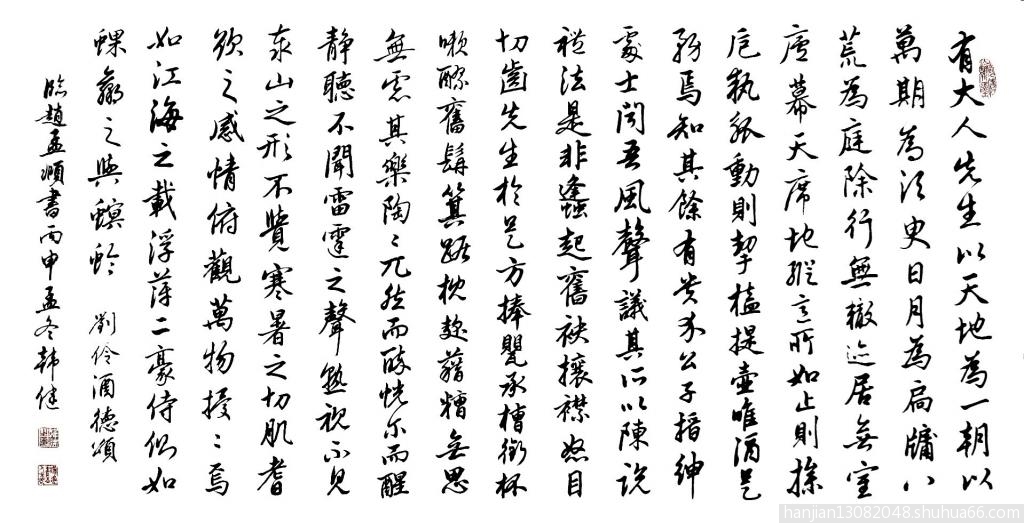 有大人先生以天地為一朝以
萬期為須臾日月為扃牖八
荒為庭除行無轍迹居無室
廬幕天席地縱意所如止則操
卮執觚動則挈榼提壺唯酒是
務焉知其餘有貴介公子搢紳
處士聞吾風聲議其所以陳説
禮法是非蠭起奮袂攘襟怒目
切齒先生於是方捧甖承槽銜杯
漱醪奮髯箕踞枕麴藉糟無思
無慮其樂陶〻兀然而醉恍尔而醒
静聽不聞雷霆之聲熟視不見
泰山之形不覺寒暑之切肌耆
欲之感情俯觀萬物擾〻焉
如江海之載浮萍二豪侍側如
蜾蠃之與螟蛉 劉伶酒德頌
臨趙孟頫書丙申孟冬韩健
hanjian13082048.shuhua66.com